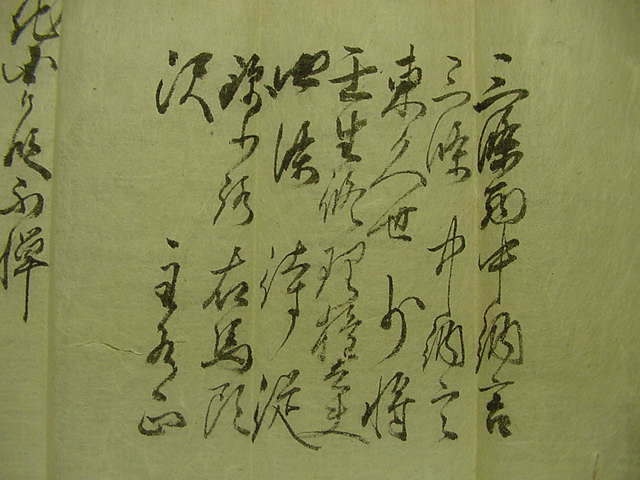 三條西中納言
三條 中納言
東久世 少将
壬生修理權大夫
四條 侍従
錦小路 右馬頭
沢 主水正
不憚